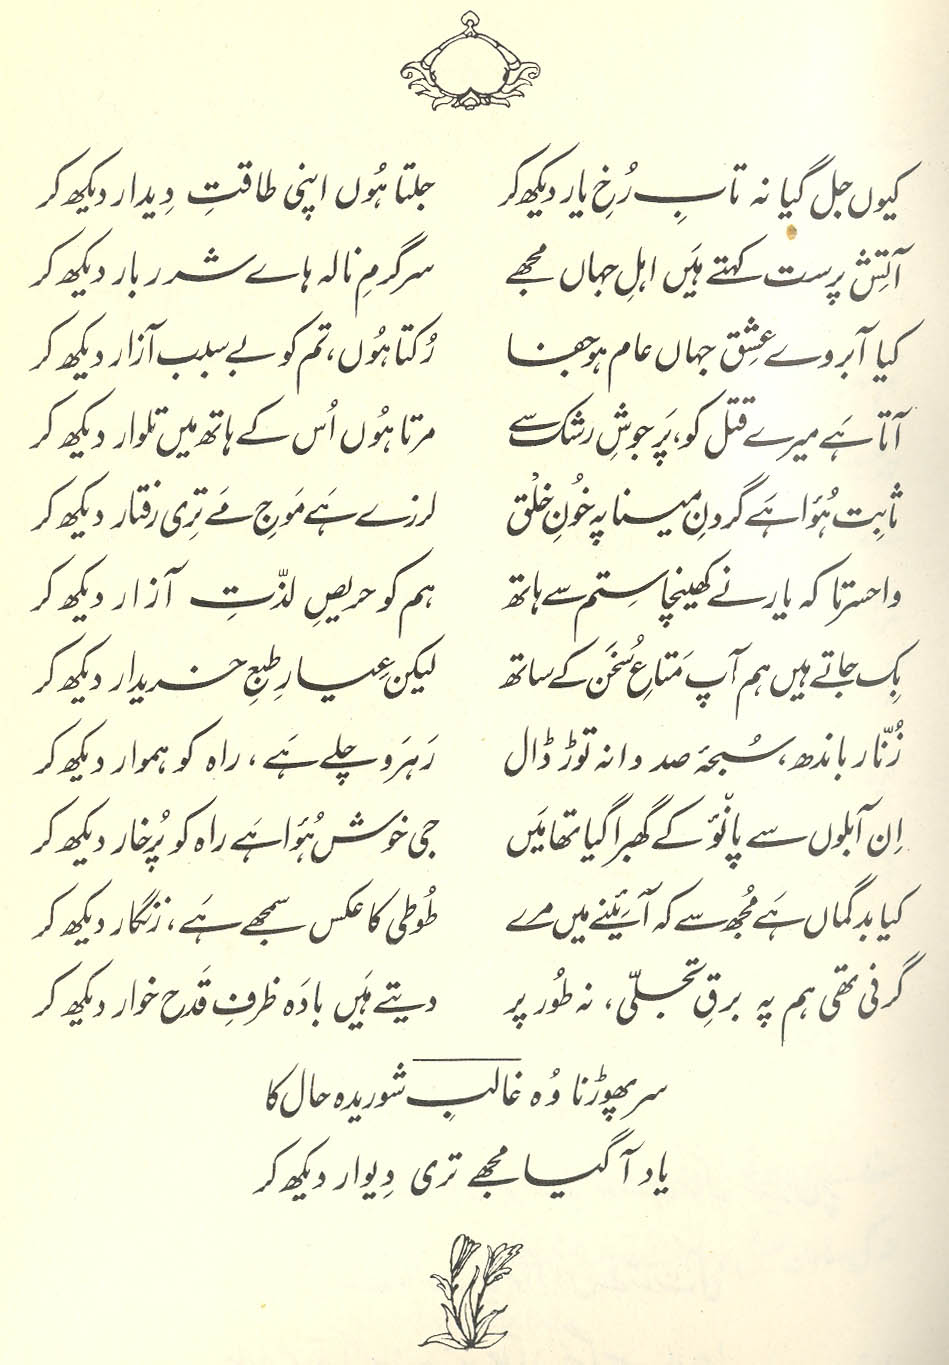 کیوں جل گیا نہ تابِ رُخِ یار دیکھ کر جلتا ہُوں اپنی طاقتِ دِیدار دیکھ کر
آتِش پرست کہتے ہَیں اہلِ جہاں مجھے سرگرمِ نالہ ہاے شرر بار دیکھ کر
کیا آبروے عشِق جہاں عام ہو جفا رُکتا ہُوں، تم کو بے سبب آزار دیکھ کر
آتا ہَے میرے قتل کو، پَر جوشِ رشک سے مرتا ہُوں اُس کے ہاتھ میں تلوار دیکھ کر
ثابِت ہُوَا ہَے گردنِ مینا پہ خُونِ خلْق لرزے ہَے مَوجِ مَے تِری رفتار دیکھ کر
واحسرتا کہ یار نے کھینچا سِتم سے ہاتھ ہم کو حریصِ لذّتِ آزار دیکھ کر
بِک جاتے ہیں ہم آپ مَتاعِ سُخَن کے ساتھ لیکن عِیارِ طبعِ خریدار دیکھ کر
زُنّار باندھ، سُبحۂ صد دانہ توڑ ڈال رَہرَو چلے ہَے، راہ کو ہموار دیکھ کر
اِن آبلوں سے پانْوٗ کے گھبرا گیا تھا مَیں جی خوش ہُوَا ہَے راہ کو پُرخار دیکھ کر
کیا بدگماں ہَے مُجھ سے کہ آئینے میں مرے طُوطی کا عکس سمجھے ہَے، زنگار دیکھ کر
گرنی تھی ہم پہ برقِ تجلّی، نہ طُور پر دیتے ہَیں بادَہ ظرفِ قَدَح خوار دیکھ کر
سر پھوڑنا وُہ غالبِ شوریدہ حال کا
یاد آ گیا مجھے تری دِیوار دیکھ کر